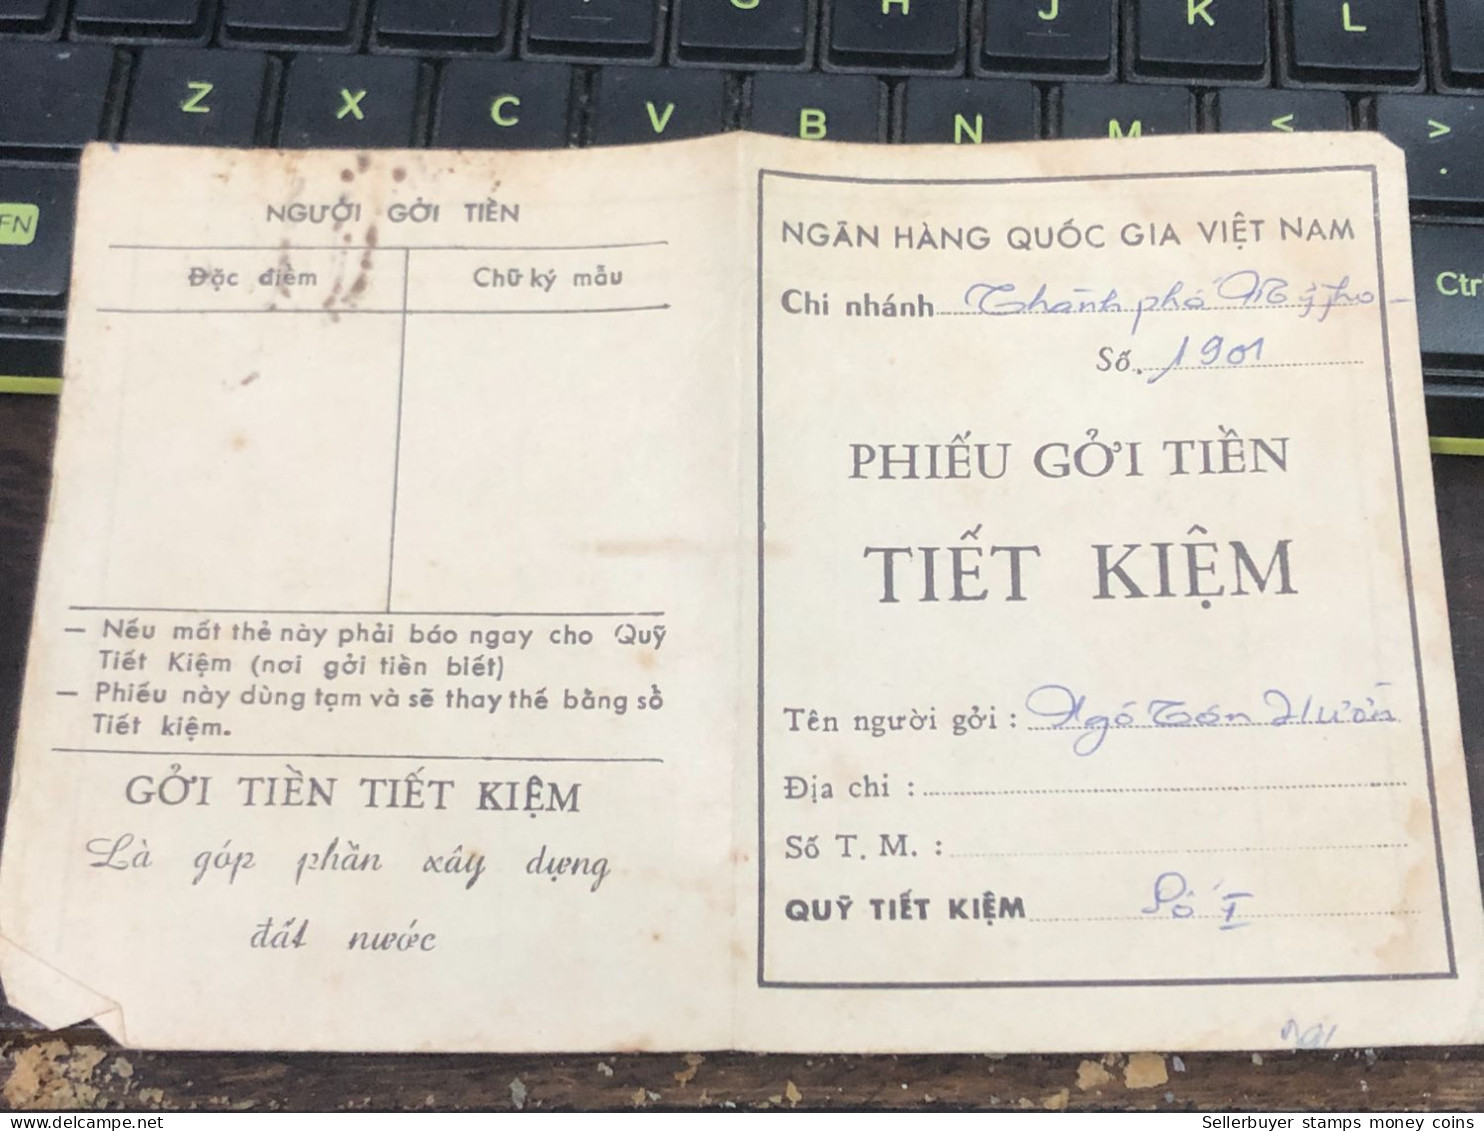 G H J K L
Z X C V B N M < >
.
FN
Ctr
NGƯỜI GỞI TIỀN
Đặc điểm Chữ ký mẫu
— Nếu mất thẻ này phải báo ngay cho Quỹ
Tiết Kiệm (nơi gởi tiền biết)
— Phiếu này dùng tạm và sẽ thay thế bằng sổ
Tiết kiệm.
GỞI TIỀN TIẾT KIỆM
Là góp phần xây dựng
đất nước
NGÂN HÀNG QUỐC GIA VIỆT NAM
Chi nhánh Thành phố Mỹ Tho
Số 1901
PHIẾU GỞI TIỀN
TIẾT KIỆM
Tên người gởi : Ngô Tôn
Địa chỉ :
Số T. M. :
QUỸ TIẾT KIỆM Số I
Sellerbuyer stamps money coins